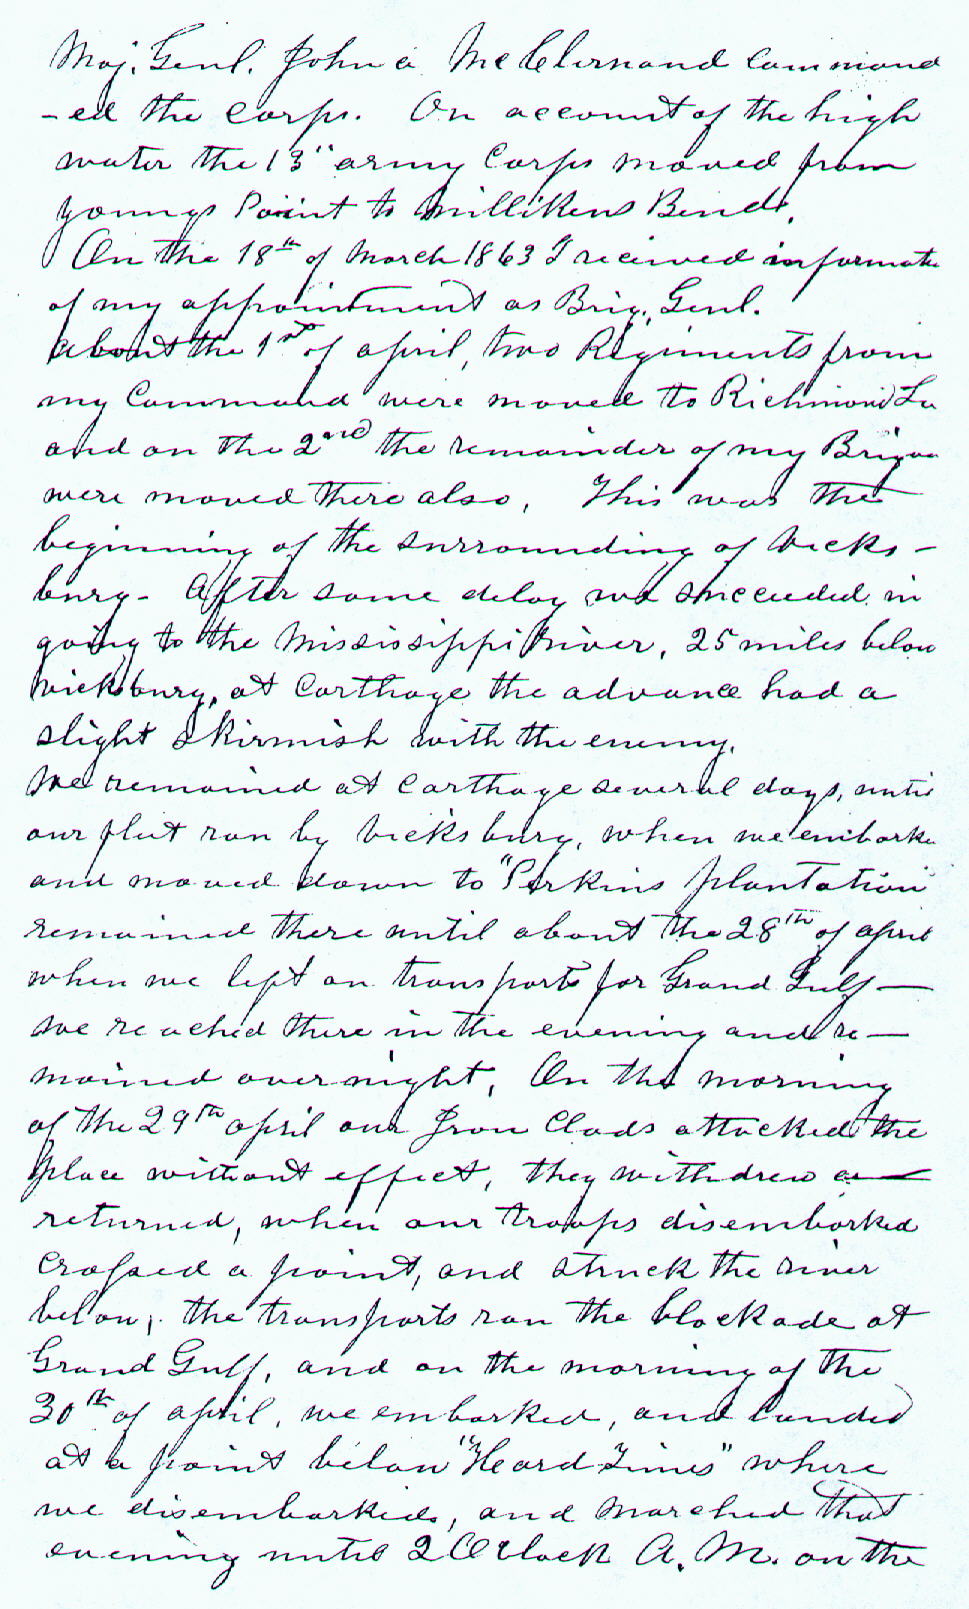 Maj. Genl. John A McClernand command
-ed the corps. On account of the high
water the 13" army Corps moved from
youngs Point to Millikens Bend.
On the 18th of March 1863 I received informati
of my appointment as Brig. Genl.
About the 1st of April, two Regiments from
my Command were moved to Richmond La
and on the 2nd the remainder of my Briga
were moved there also. This was the
beginning of the surrounding of Vicks-
burg- After some delay we succeeded in
going to the Mississippi River, 25 miles below
Vicksburg, at Carthage the advance had a
slight skirmish with the enemy.
We remained at Carthage several days, until
our fleet ran by Vicksburg, when we embarke
and moved down to "Perkins plantation
remained there until about the 28th of April
when we left on transports for Grand Gulf—
we reached there in the evening and re—
mained over night. On the morning
of the 29th April our Iron Clads attacked the
place without effect, they withdrew
returned, when our troops disembarked
crossed a point, and struck the river
below; the transports ran the blockade at
Grand Gulf, and on the morning of the
30th of April, we embarked, and landed
at a point below "Heard Times" where
we disembarked, and marched that
evening until 2 O'Clock A.M. on the